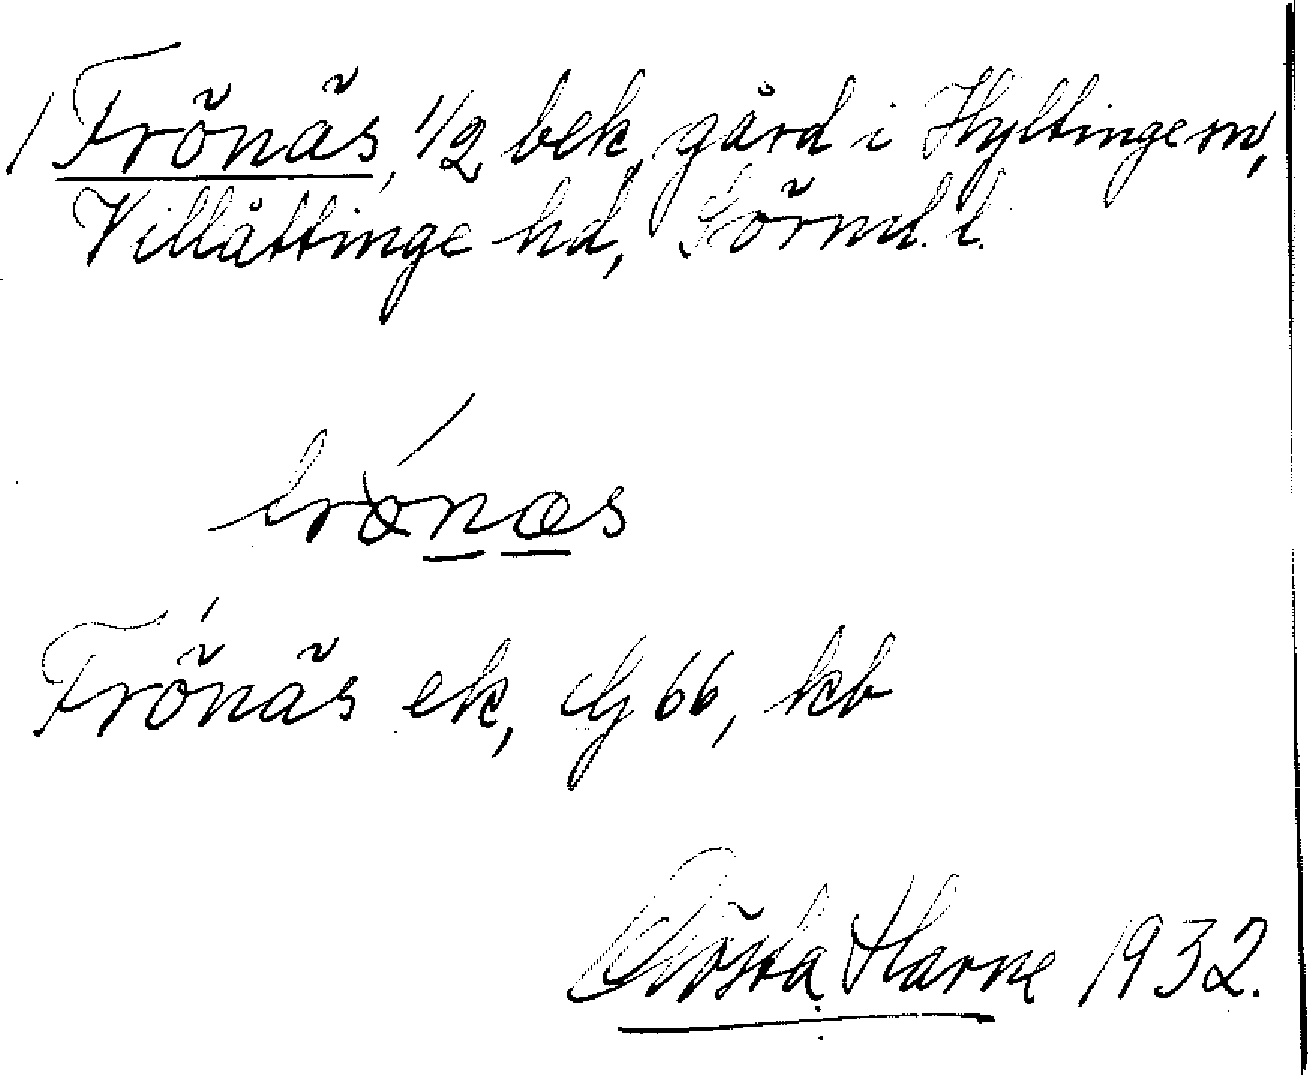 Frönäs, 1/2 bek gård i Hyltinge sn,
Villåttinge hd, Sörml. l.
Frönäs ek, Gj 66, kb
Gösta Harne 1932.